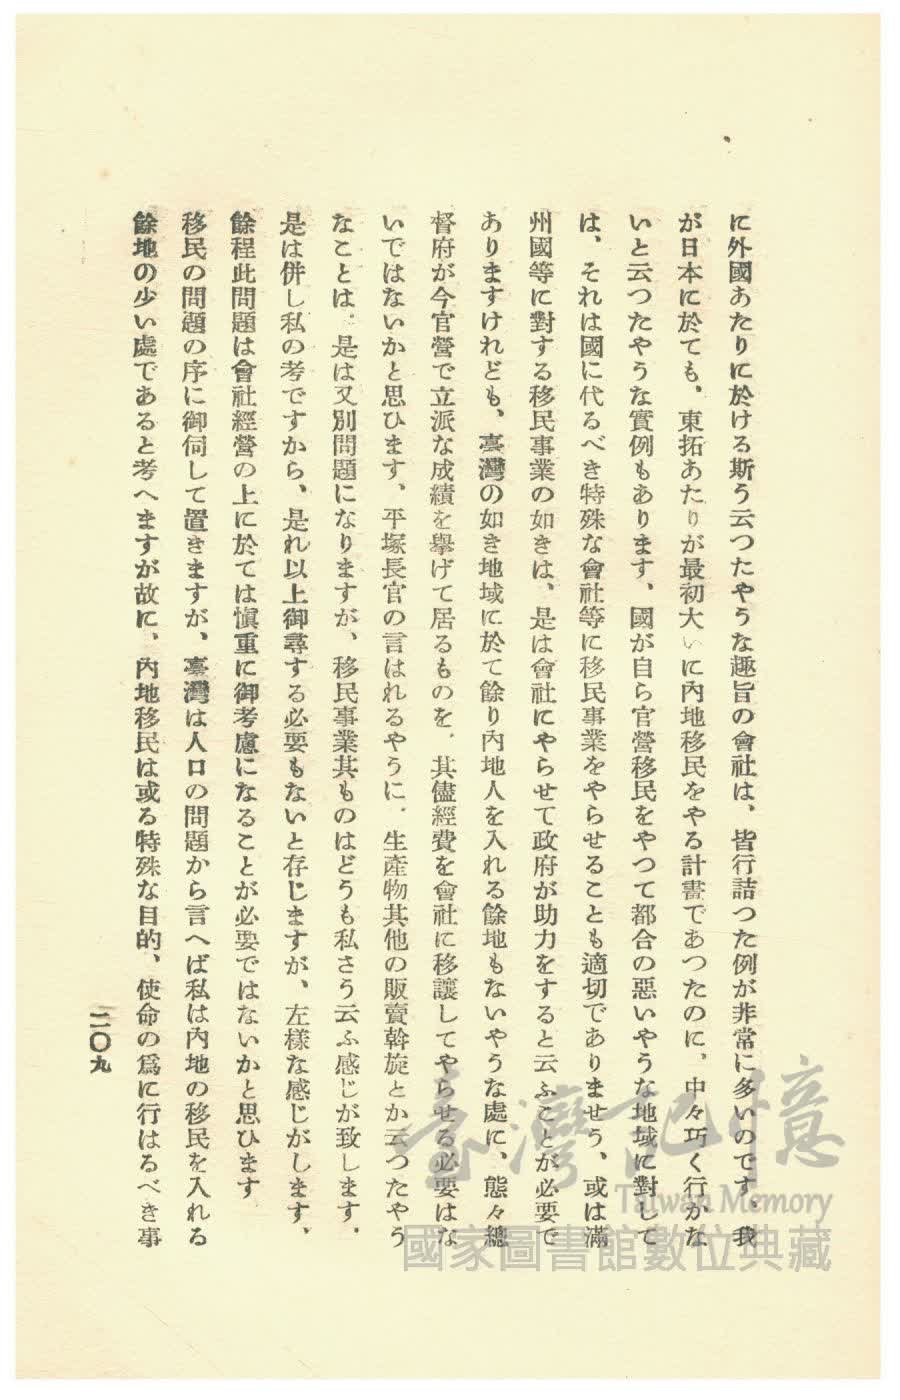 に外國あたりに於ける斯う云つたやうな趣旨の會社は、皆行詰つた例が非常に多いのです、我
が日本に於ても、東拓あたりが最初大いに內地移民をやる計畫であつたのに、中々巧く行かな
いと云つたやうな實例もあります、國が自ら官營移民をやつて都合の惡いやうな地域に對して
は、それは國に代るべき特殊な會社等に移民事業をやらせることも適切でありませう、或は滿
州國等に對する移民事業の如きは、是は會社にやらせて政府が助力をすると云ふことが必要で
ありますけれども、臺灣の如き地域に於て餘り內地人を入れる餘地もないやうな處に、態々總
督府が今官營で立派な成績を擧げて居るものを、其儘經費を會社に移讓してやらせる必要はな
いではないかと思ひます、平塚長官の言はれるやうに、生產物其他の販賣斡旋とか云つたやう
なことは、是は又別問題になりますが、移民事業其ものはどうも私さう云ふ感じが致します、
是は併し私の考ですから、是れ以上御尋する必要もないと存じますが、左樣な感じがします、
餘程此問題は會社經營の上に於ては愼重に御考慮になることが必要ではないかと思ひます
移民の問題の序に御伺して置きますが、臺灣は人口の問題から言へば私は內地の移民を入れる
餘地の少い處であると考へますが故に、內地移民は或る特殊な目的、使命の爲に行はるべき事
二〇九
臺灣記憶
Taiwan Memory
國家圖書館數位典藏